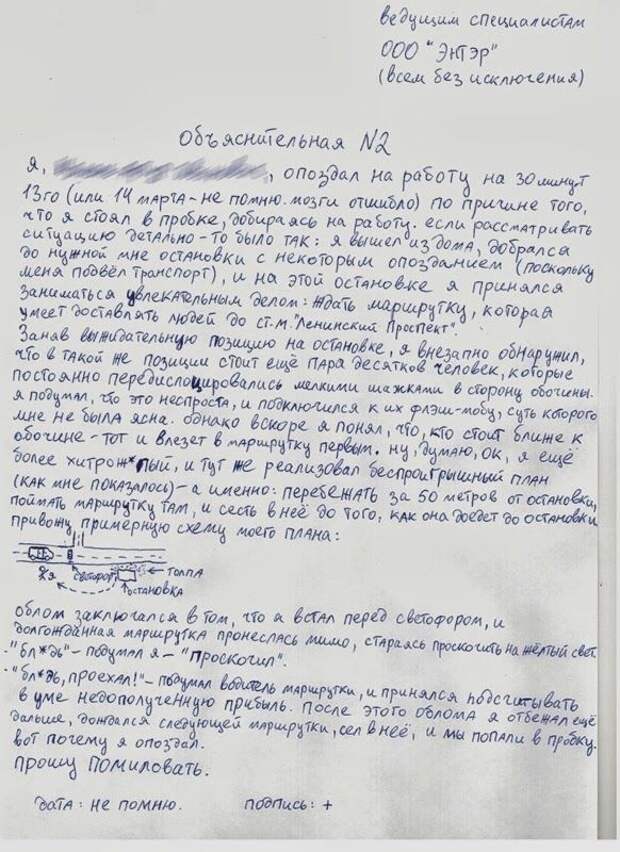 ведущим специалистам
ООО "Энтэр"
(всем без исключения)
Объяснительная N2
Я, , опоздал на работу на 30 минут
13го (или 14 марта - не помню. мозги отшибло) по причине того,
что я стоял в пробке, добираясь на работу. если рассматривать
ситуацию детально - то было так: я вышел из дома, добрался
до нужной мне остановки с некоторым опозданием (поскольку
меня подвёл транспорт), и на этой остановке я принялся
заниматься увлекательным делом: ждать маршрутку, которая
умеет доставлять людей до ст.м. "Ленинский Проспект".
Заняв выжидательную позицию на остановке, я внезапно обнаружил,
что в такой же позиции стоит ещё пара десятков человек, которые
постоянно передислоцировались мелкими шажками в сторону обочины.
я подумал, что это неспроста, и подключился к их флэш-мобу, суть которого
мне не была ясна. однако вскоре я понял, что, кто стоит ближе к
обочине - тот и влезет в маршрутку первым. ну, думаю, ок, я ещё
более хитрож*пый, и тут же реализовал беспроигрышный план
(как мне показалось) - а именно: перебежать за 50 метров от остановки,
поймать маршрутку там, и сесть в неё до того, как она доедет до остановки
привожу примерную схему моего плана:
я светофор толпа
остановка
облом заключался в том, что я встал перед светофором, и
долгожданная маршрутка пронеслась мимо, стараясь проскочить на жёлтый свет.
- "бл*дь" - подумал я - "проскочил".
- "бл*дь, проехал!" - подумал водитель маршрутки, и принялся подсчитывать
в уме недополученную прибыль. После этого облома я отбежал ещё
дальше, дождался следующей маршрутки, сел в неё, и мы попали в пробку.
вот почему я опоздал.
прошу помиловать.
дата: не помню. подпись: +